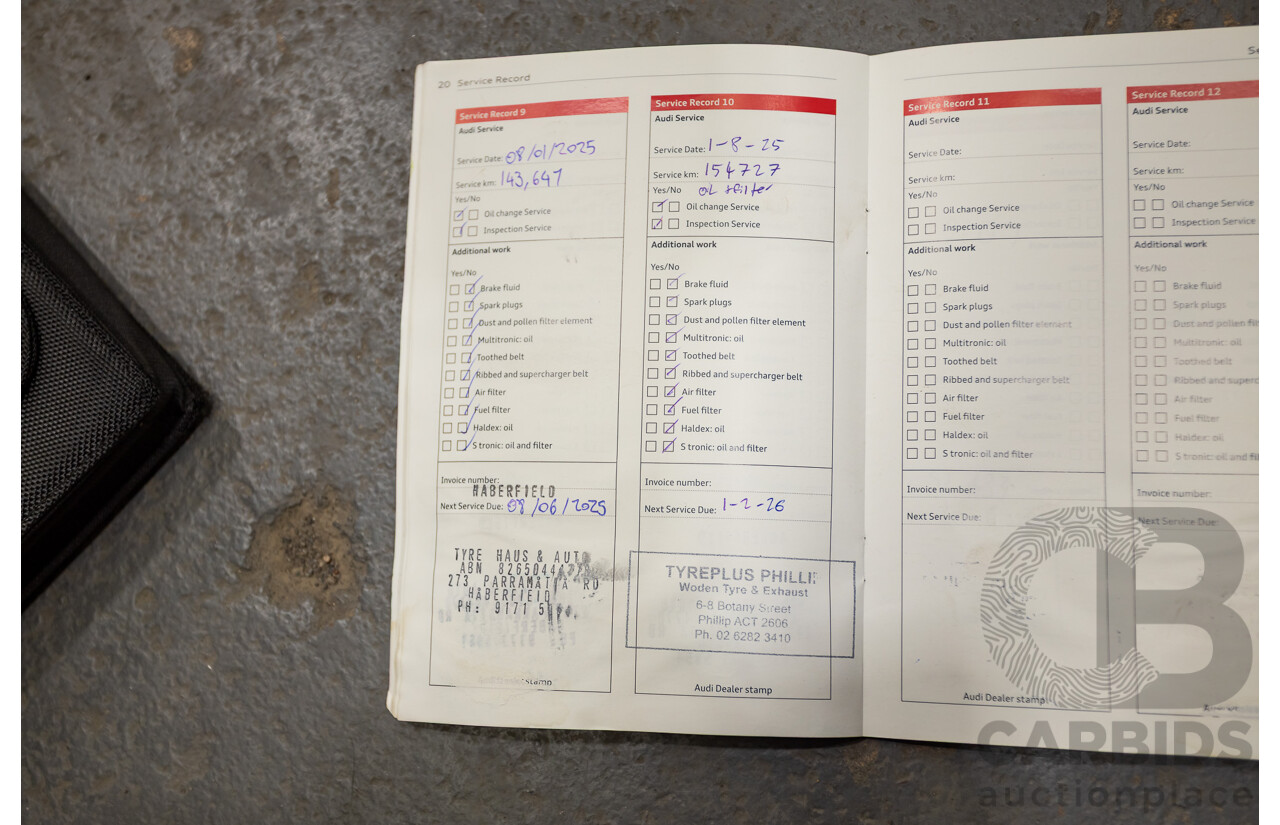 20 Service Record
Service Record 9
Audi Service
Service Date: 08/01/2025
Service km: 143,647
Yes/No
Oil change Service
Inspection Service
Additional work
Yes/No
Brake fluid
Spark plugs
Dust and pollen filter element
Multitronic: oil
Toothed belt
Ribbed and supercharger belt
Air filter
Fuel filter
Haldex: oil
S tronic: oil and filter
Invoice number:
HABERFIELD
Next Service Due: 08/06/2025
TYRE HAUS & AUTO
ABN
273 PARRAMATTA RD
HABERFIELD
PH: 9171
stamp
Service Record 10
Audi Service
Service Date: 1-8-25
Service km: 154727
Yes/No OIL + filter
Oil change Service
Inspection Service
Additional work
Yes/No
Brake fluid
Spark plugs
Dust and pollen filter element
Multitronic: oil
Toothed belt
Ribbed and supercharger belt
Air filter
Fuel filter
Haldex: oil
S tronic: oil and filter
Invoice number:
Next Service Due: 1-2-26
TYREPLUS PHILLIP
Woden Tyre & Exhaust
6-8 Botany Street
Phillip ACT 2606
Ph. 02 6282 3410
Audi Dealer stamp
Service Record 11
Audi Service
Service Date:
Service km:
Yes/No
Oil change Service
Inspection Service
Additional work
Yes/No
Brake fluid
Spark plugs
Dust and pollen filter element
Multitronic: oil
Toothed belt
Ribbed and supercharger belt
Air filter
Fuel filter
Haldex: oil
S tronic: oil and filter
Invoice number:
Next Service Due:
Audi Dealer stamp
Se
Service Record 12
Audi Service
Service Date:
Service km:
Yes/No
Oil change Service
Inspection Service
Additional work
Yes/No
Brake fluid
Spark plugs
Dust and pollen fil
Multitronic: oil
Toothed belt
Ribbed and superc
Air filter
Fuel filter
Haldex: oil
S tronic: oil and fil
Invoice number:
Next Service Due:
CB
CARBIDS
auctionplace